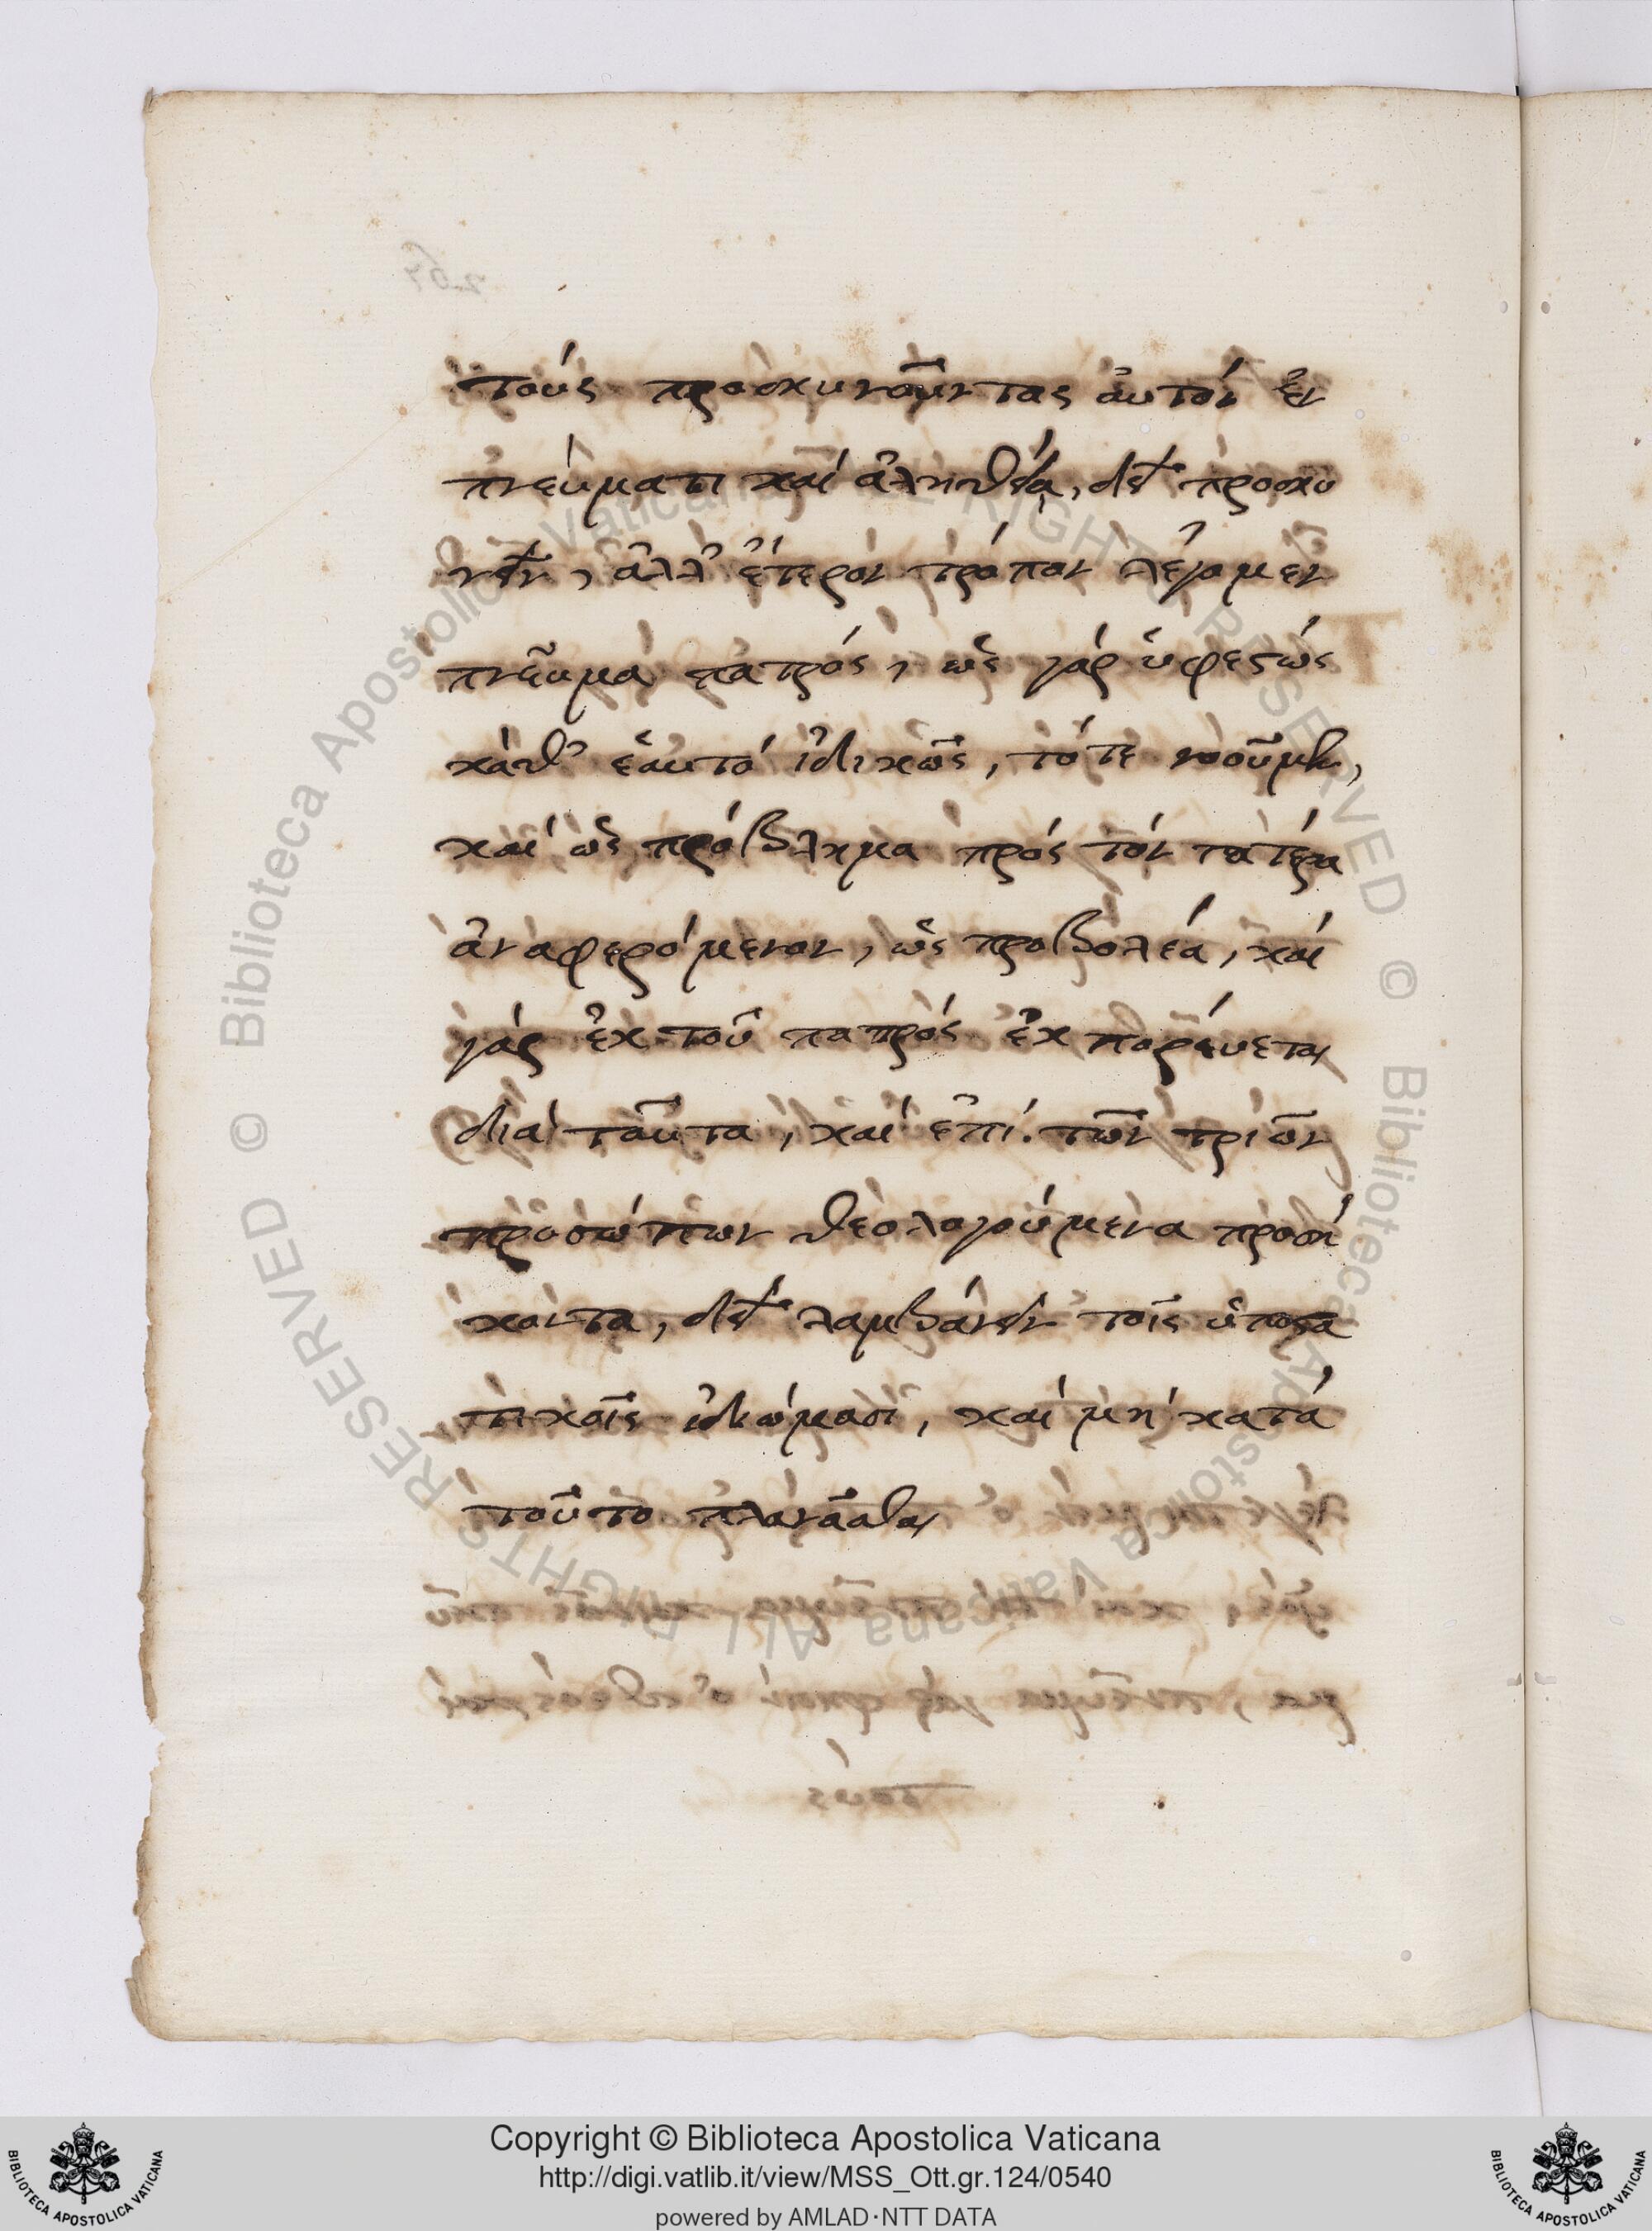 τοὺς προσκυνοῦντας αὐτὸν ἐν
πνεύματι καὶ ἀληθείᾳ, δεῖ προσκυ
νεῖν, ἀλλ' ἕτερον τρόπον λέγομεν
πνεῦμα πατρός, ὡς γὰρ ὑφεστὼς
καθ' ἑαυτὸ ἰδικῶς, τό τε νοούμεν,
καὶ ὡς πρόβλημα πρὸς τὸν πατέρα
ἀναφερόμενον, ὡς προβολέα, καὶ
γὰρ ἐκ τοῦ πατρὸς ἐκπορεύεται
διὰ ταῦτα, καὶ ἐπὶ. τῶν τριῶν
προσώπων θεολογούμενα προσή
κοντα, δεῖ λαμβάνειν τοῖς ὑποστα
τικοῖς ἰδιώμασι, καὶ μὴ κατὰ
τοῦτο πλανᾶσθαι
Copyright © Biblioteca Apostolica Vaticana
http://digi.vatlib.it/view/MSS_Ott.gr.124/0540
powered by AMLAD·NTT DATA
© Biblioteca Apostolica Vaticana ALL RIGHTS RESERVED
© Biblioteca Apostolica Vaticana ALL RIGHTS RESERVED
BIBLIOTECA APOSTOLICA VATICANA
BIBLIOTECA APOSTOLICA VATICANA